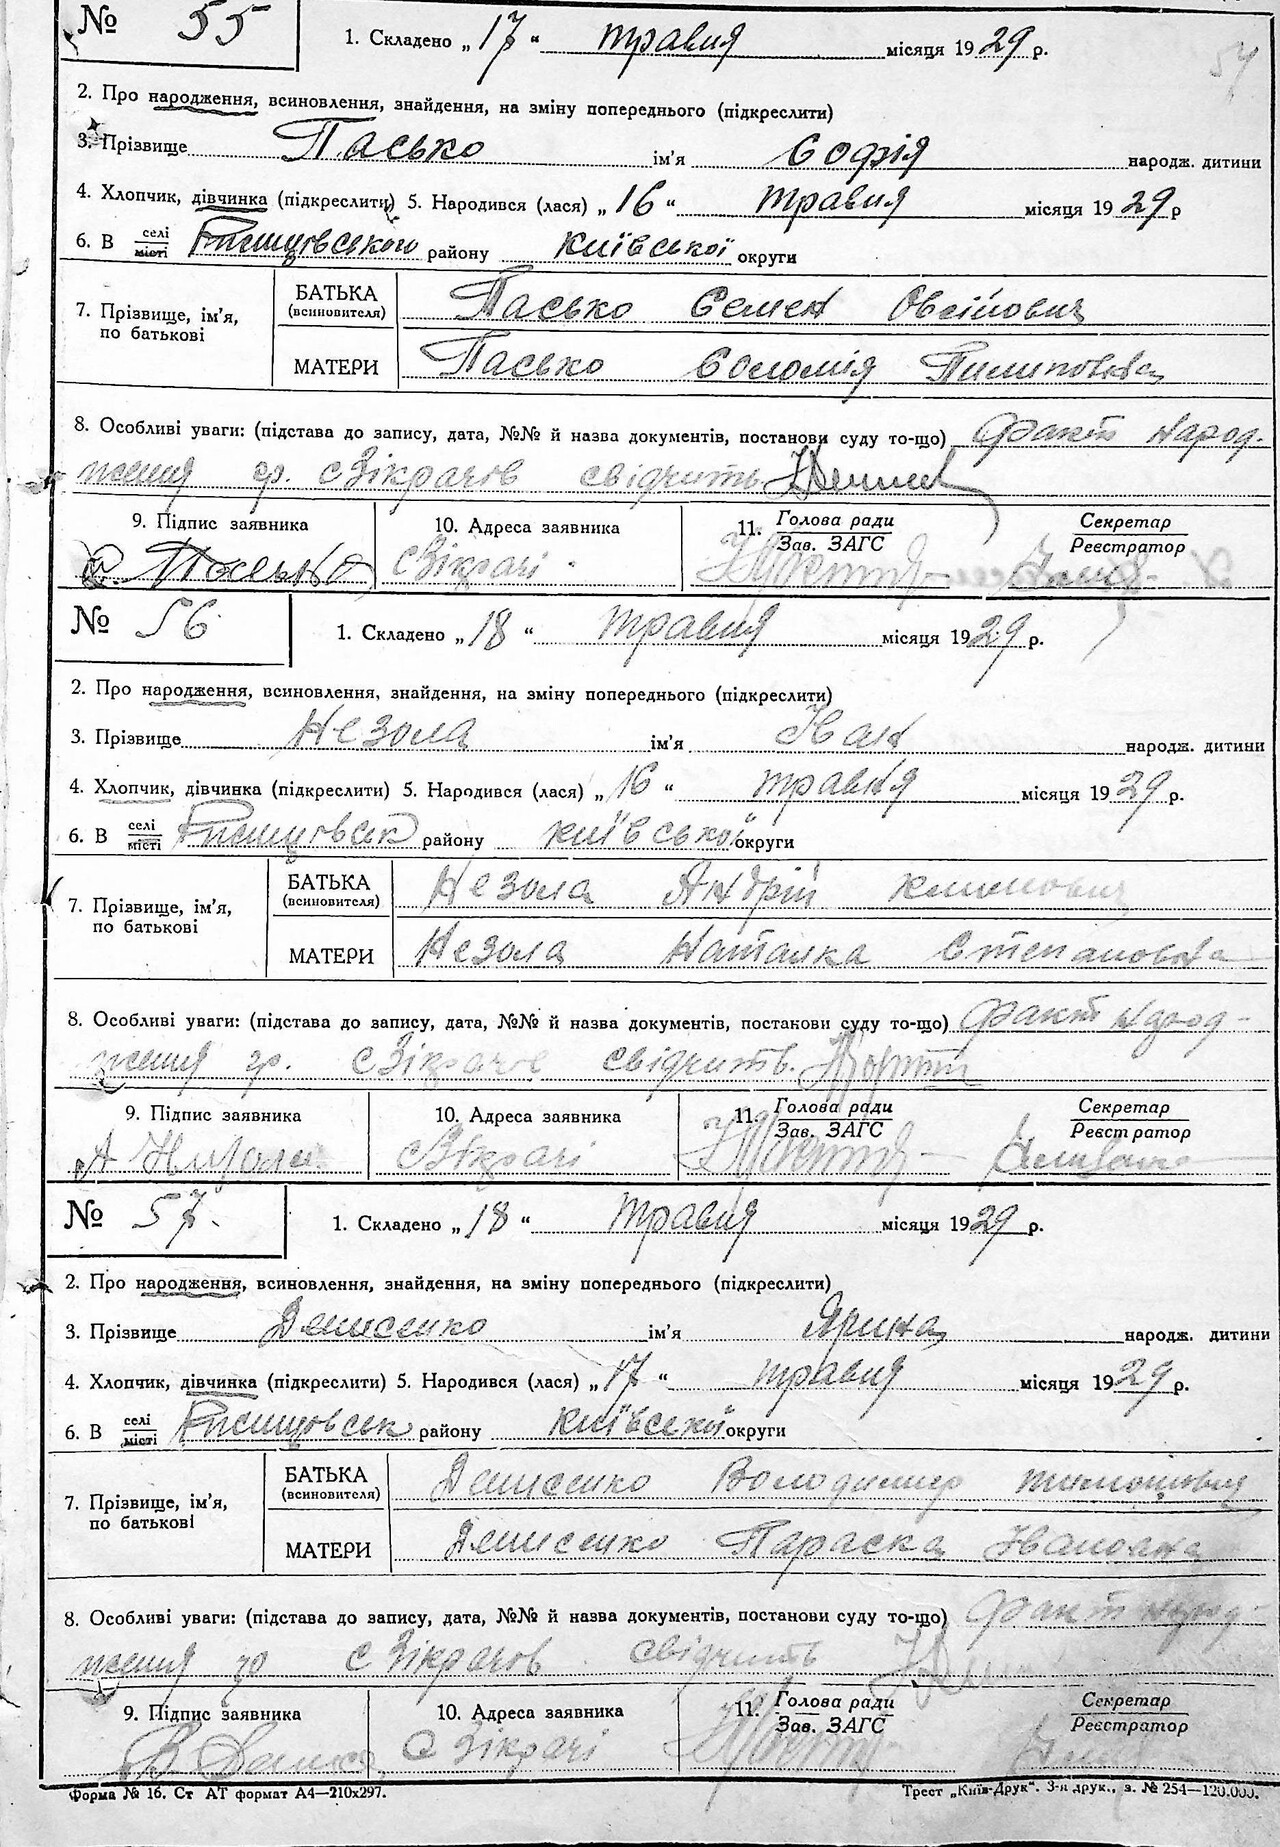 № 55
54
1. Складено „17“ травня місяця 1929 р.
2. Про народження, всиновлення, знайдення, на зміну попереднього (підкреслити)
3. Прізвище Пасько ім'я Софія народж. дитини
4. Хлопчик, дівчинка (підкреслити) 5. Народився (лася) „16“ травня місяця 1929 р
6. В селі місті Ржищівського району Київської округи
7. Прізвище, ім'я, по батькові
БАТЬКА (всиновителя) Пасько Семен Овсійович
МАТЕРИ Пасько Соломія Пилиповна
8. Особливі уваги: (підстава до запису, дата, №№ й назва документів, постанови суду то-що) Факт народ-
ження гр. с Зікрачів свідчить
9. Підпис заявника 10. Адреса заявника 11. Голова ради Зав. ЗАГС Секретар Реєстратор
Пасько с Зікрачі
№ 56
1. Складено „18“ травня місяця 1929 р.
2. Про народження, всиновлення, знайдення, на зміну попереднього (підкреслити)
3. Прізвище Незола ім'я Іван народж. дитини
4. Хлопчик, дівчинка (підкреслити) 5. Народився (лася) „16“ травня місяця 1929 р.
6. В селі місті Ржищівськ району Київської округи
7. Прізвище, ім'я, по батькові
БАТЬКА (всиновителя) Незола Андрій Климович
МАТЕРИ Незола Наталка Степановна
8. Особливі уваги: (підстава до запису, дата, №№ й назва документів, постанови суду то-що) Факт народ-
ження гр. с Зікрачів свідчить.
9. Підпис заявника 10. Адреса заявника 11. Голова ради Зав. ЗАГС Секретар Реєстратор
с Зікрачі
№ 57.
1. Складено „18“ травня місяця 1929 р.
2. Про народження, всиновлення, знайдення, на зміну попереднього (підкреслити)
3. Прізвище Денисенко ім'я Ярина народж. дитини
4. Хлопчик, дівчинка (підкреслити) 5. Народився (лася) „17“ травня місяця 1929 р.
6. В селі місті Ржищівськ району Київської округи
7. Прізвище, ім'я, по батькові
БАТЬКА (всиновителя) Денисенко Володимир Тимошович
МАТЕРИ Денисенко Параска Івановна
8. Особливі уваги: (підстава до запису, дата, №№ й назва документів, постанови суду то-що) Факт народ-
ження гр с Зікрачів свідчить
9. Підпис заявника 10. Адреса заявника 11. Голова ради Зав. ЗАГС Секретар Реєстратор
с Зікрачі
Форма № 16. Ст АТ формат А4—210х297. Трест „Київ-Друк“. 3-я друк., з. № 254—120.000.